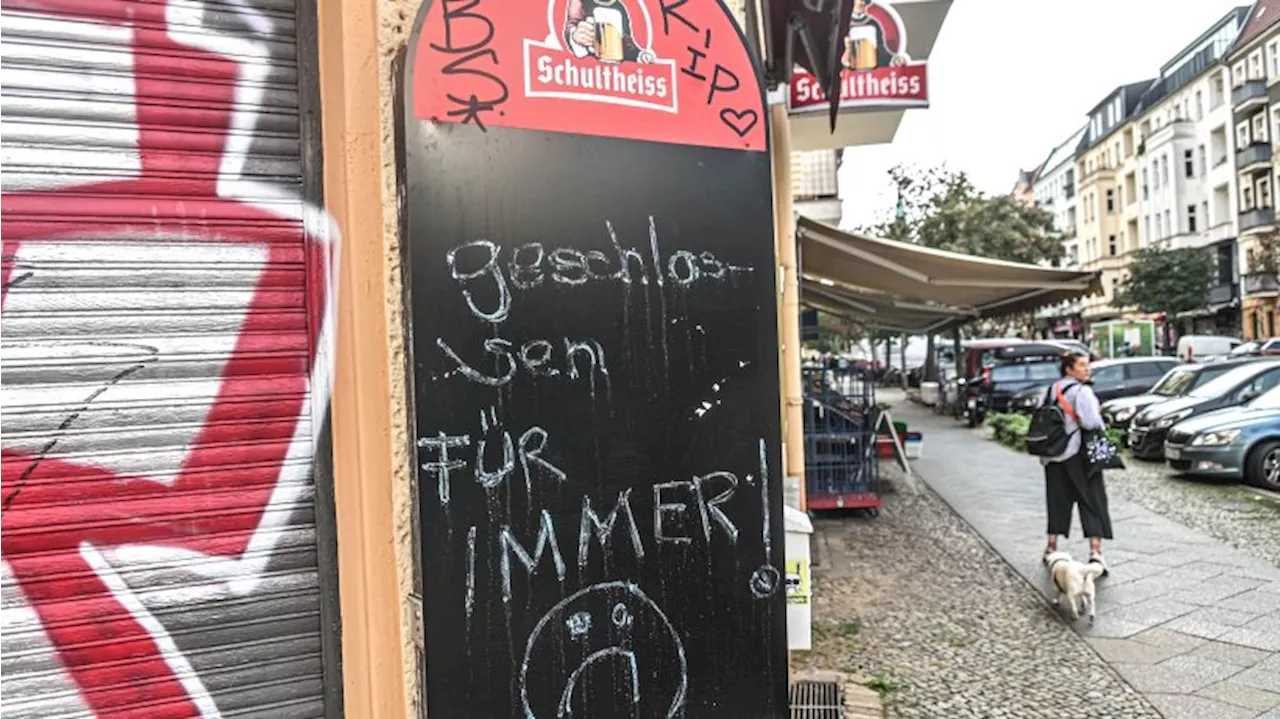 BSS*
KiP♡
Schultheiss
Schultheiss
geschlos-
sen
FÜr
IMMEr!